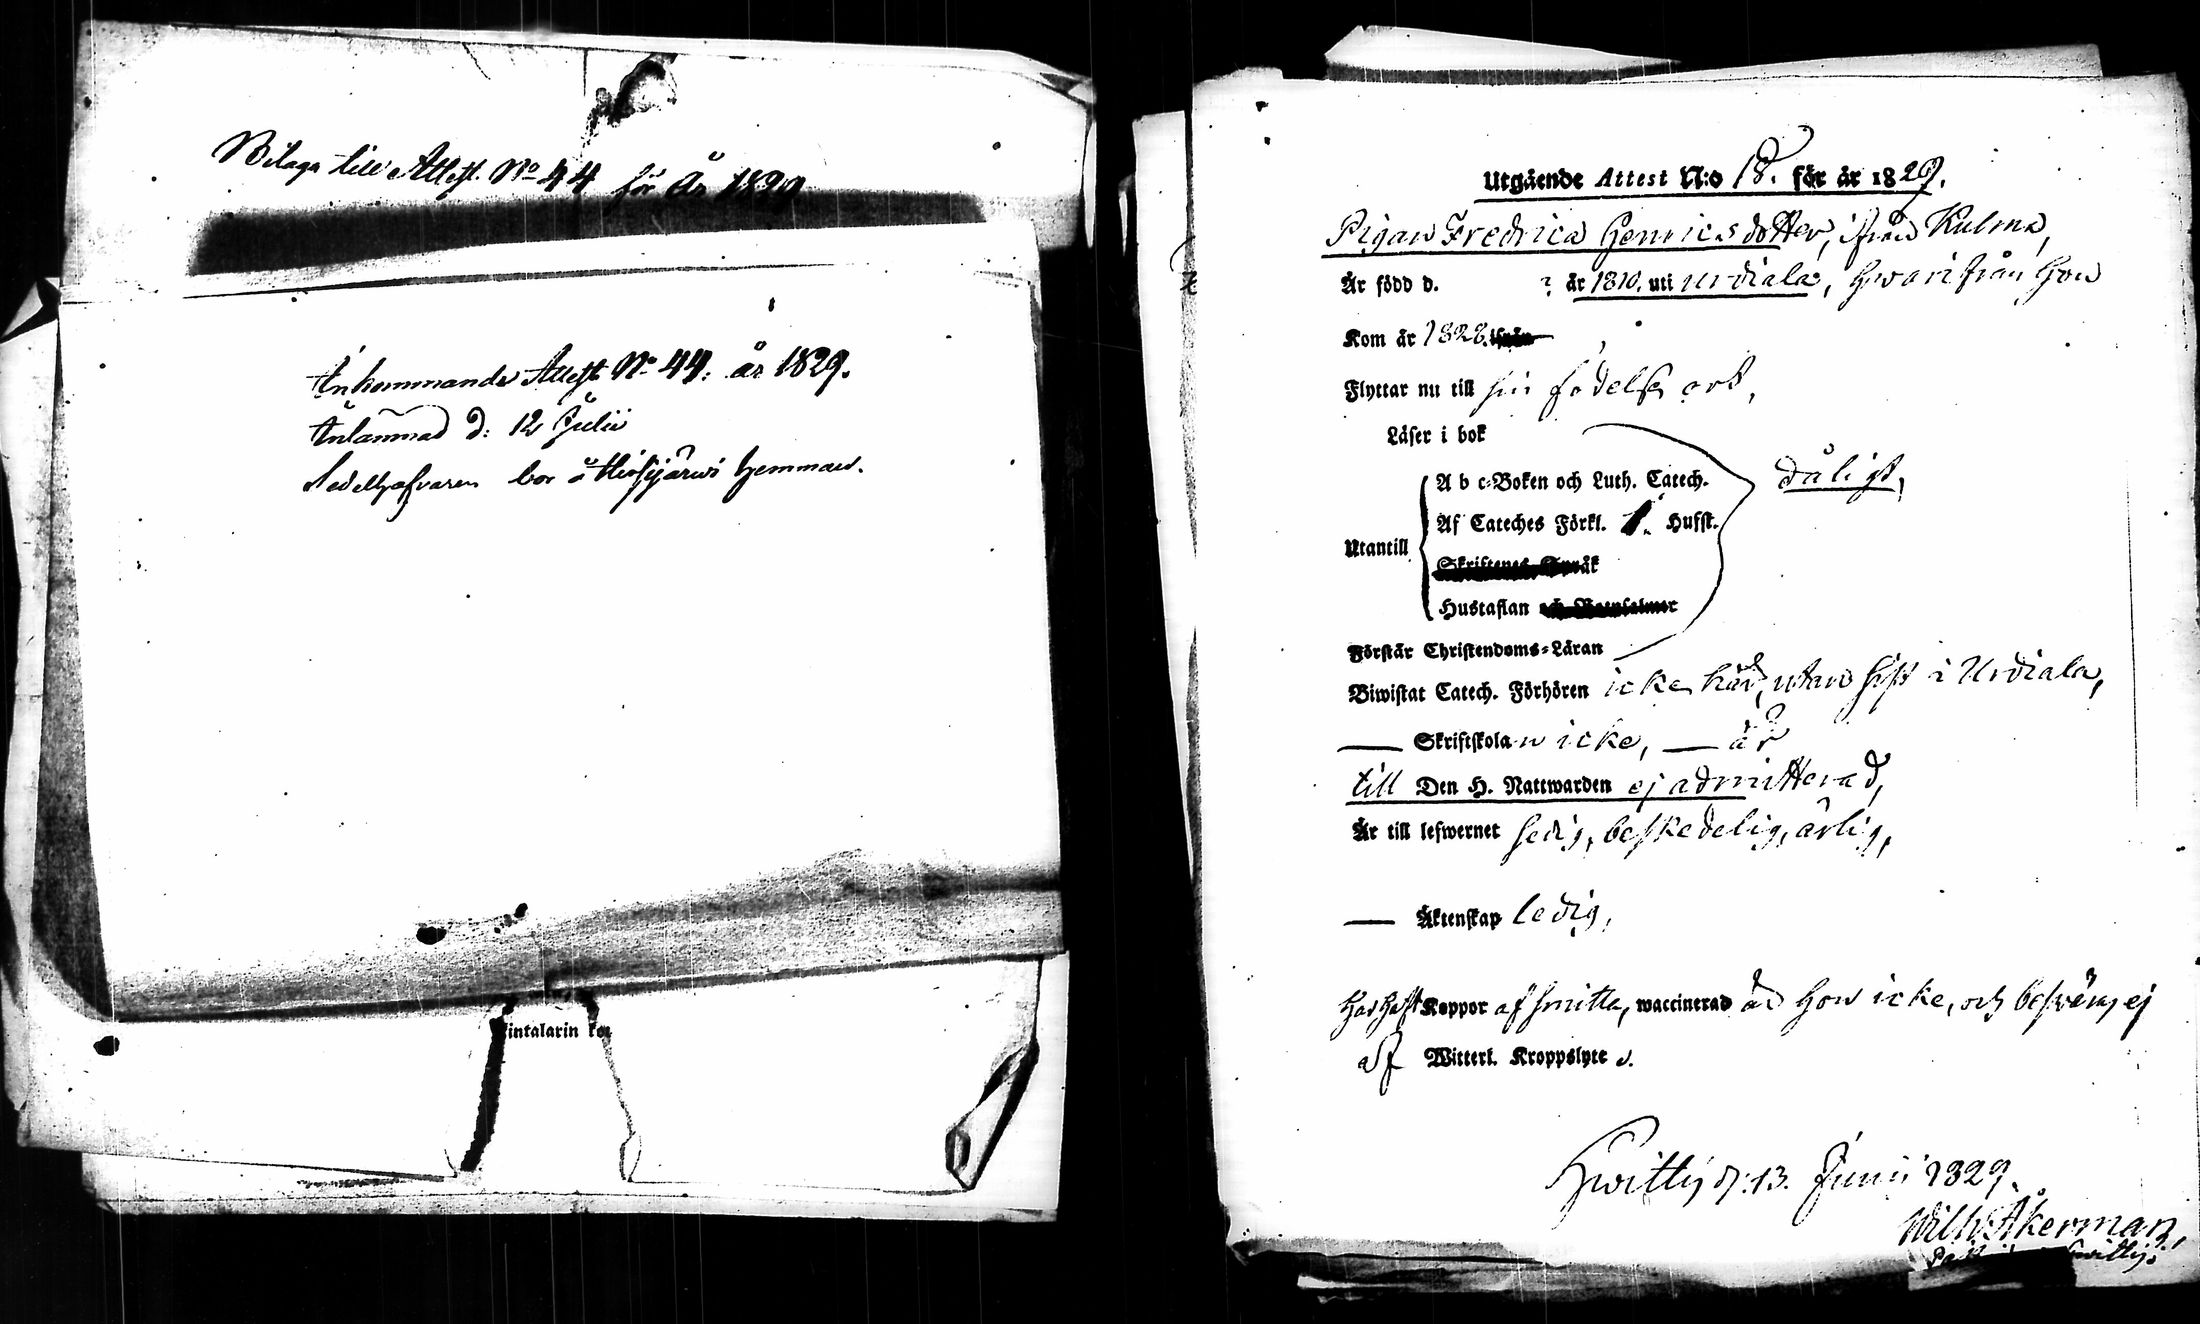 Bilaga till Attest. No 44 för År 1829
Ankommande Attest No 44. år 1829.
Anlämnad d: 12 Julii
Sedelhafvaren bor å Hirsjärwi hemman.
intalarin
Utgående Attest N:o 18. för år 1829.
Pigan Fredrica Henricsdotter, ifrån Kulma,
Är född d. ? år 1810. uti Urdiala, hwarifrån hon
Kom år 1828. ifrån
Flyttar nu till sin födelse ort,
Läser i bok
A b c-Boken och Luth. Catech. dåligt,
Af Cateches Förkl. 1. Hufst.
Utantill
Skriftenes Språk
Hustaflan och Botpsalmer
Förstår Christendoms-Läran
Biwistat Catech. Förhören icke här, utan sist i Urdiala,
— Skriftskolan icke, — är
till Den H. Nattwarden ej admitterad,
Är till lefwernet sedig, beskedelig, ärlig,
— Äktenskap ledig,
Har haft Koppor af smitta, waccinerad är hon icke, och beswäras ej
af Witterl. Kroppslyte.
Hwittis d. 13. Junii 1829.
Wilh. Åkerman,
Hwittis.